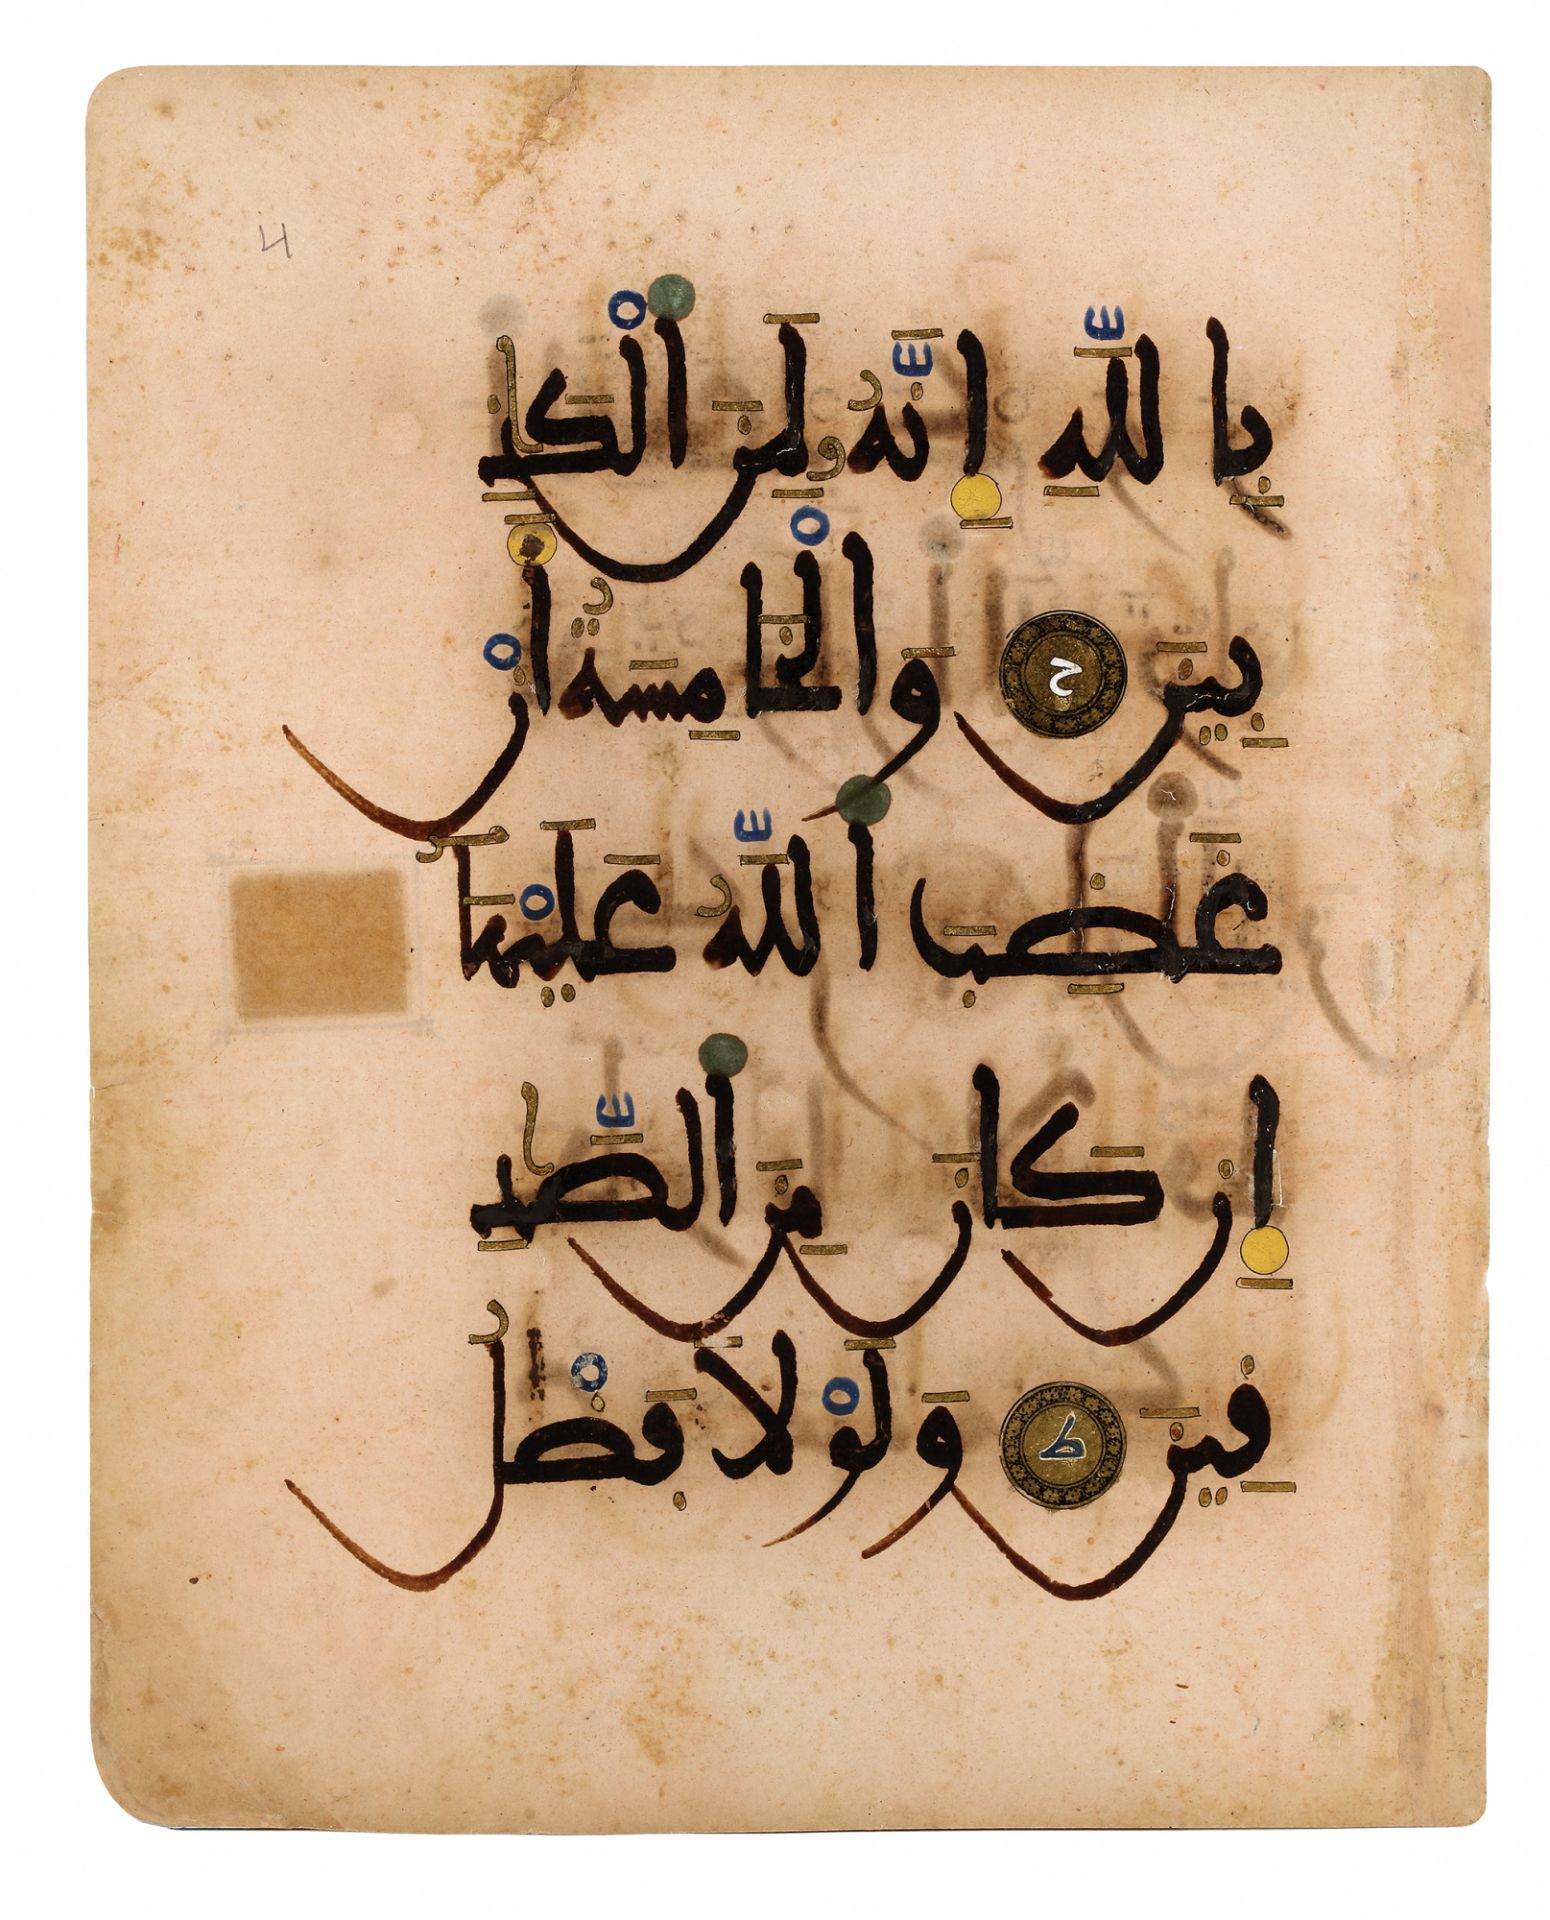 4
بِاللَّهِ إِنَّهُ لَمِنَ الْكَٰذِ
بِينَ ح وَالْخَامِسَةُ أَنْ
غَضِبَ اللَّهُ عَلَيْهَا
إِن كَانَ مِنَ الصَّٰدِ
قِينَ ط وَلَوْلَا فَضْلُ